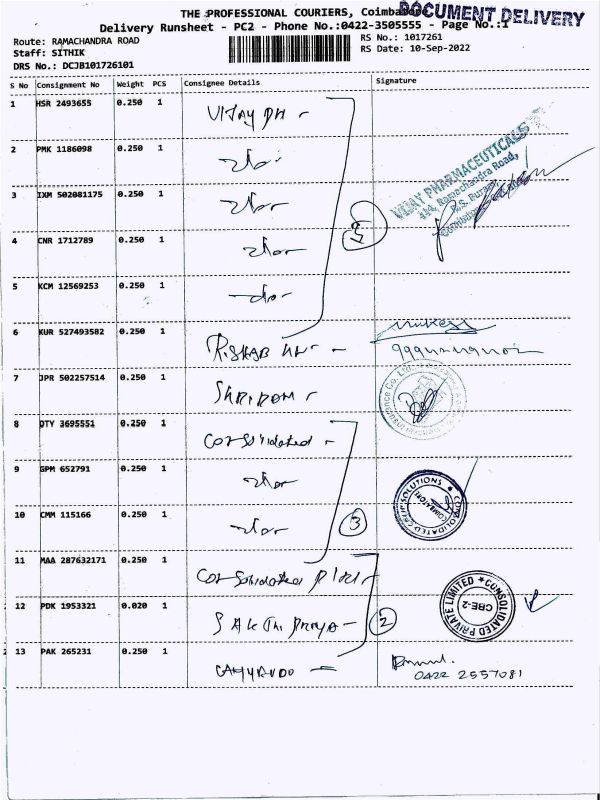 THE PROFESSIONAL COURIERS, Coimbatore
DOCUMENT DELIVERY
Delivery Runsheet - PC2 - Phone No.:0422-3505555 - Page No.:1
Route: RAMACHANDRA ROAD
RS No.: 1017261
Staff: SITHIK
RS Date: 10-Sep-2022
DRS No.: DCJB101726101
S No Consignment No Weight PCS Consignee Details Signature
1 HSR 2493655 0.250 1 VIJAY PH
2 PMK 1186098 0.250 1 -do-
VIJAY PHARMACEUTICALS
Ramachandra Road,
R.S. Puram,
3 IXM 502081175 0.250 1 -do-
4 CNR 1712789 0.250 1 -do-
5
5 KCM 12569253 0.250 1 -do-
6 KUR 527493582 0.250 1
7 JPR 502257514 0.250 1
8 QTY 3695551 0.250 1 Consolidated
9 GPM 652791 0.250 1 -do-
CONSOLIDATED SOLUTIONS
COIMBATORE
10 CMM 115166 0.250 1 -do-
3
11 MAA 287632171 0.250 1 Consolidated
12 PDK 1953321 0.020 1
2
CONSOLIDATED PRIVATE LIMITED
CBE-2
13 PAK 265231 0.250 1
0422 2557081